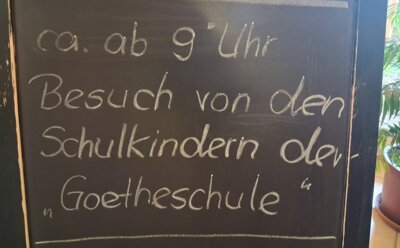 ca. ab 9 Uhr
Besuch von den
Schulkindern der
„Goetheschule“